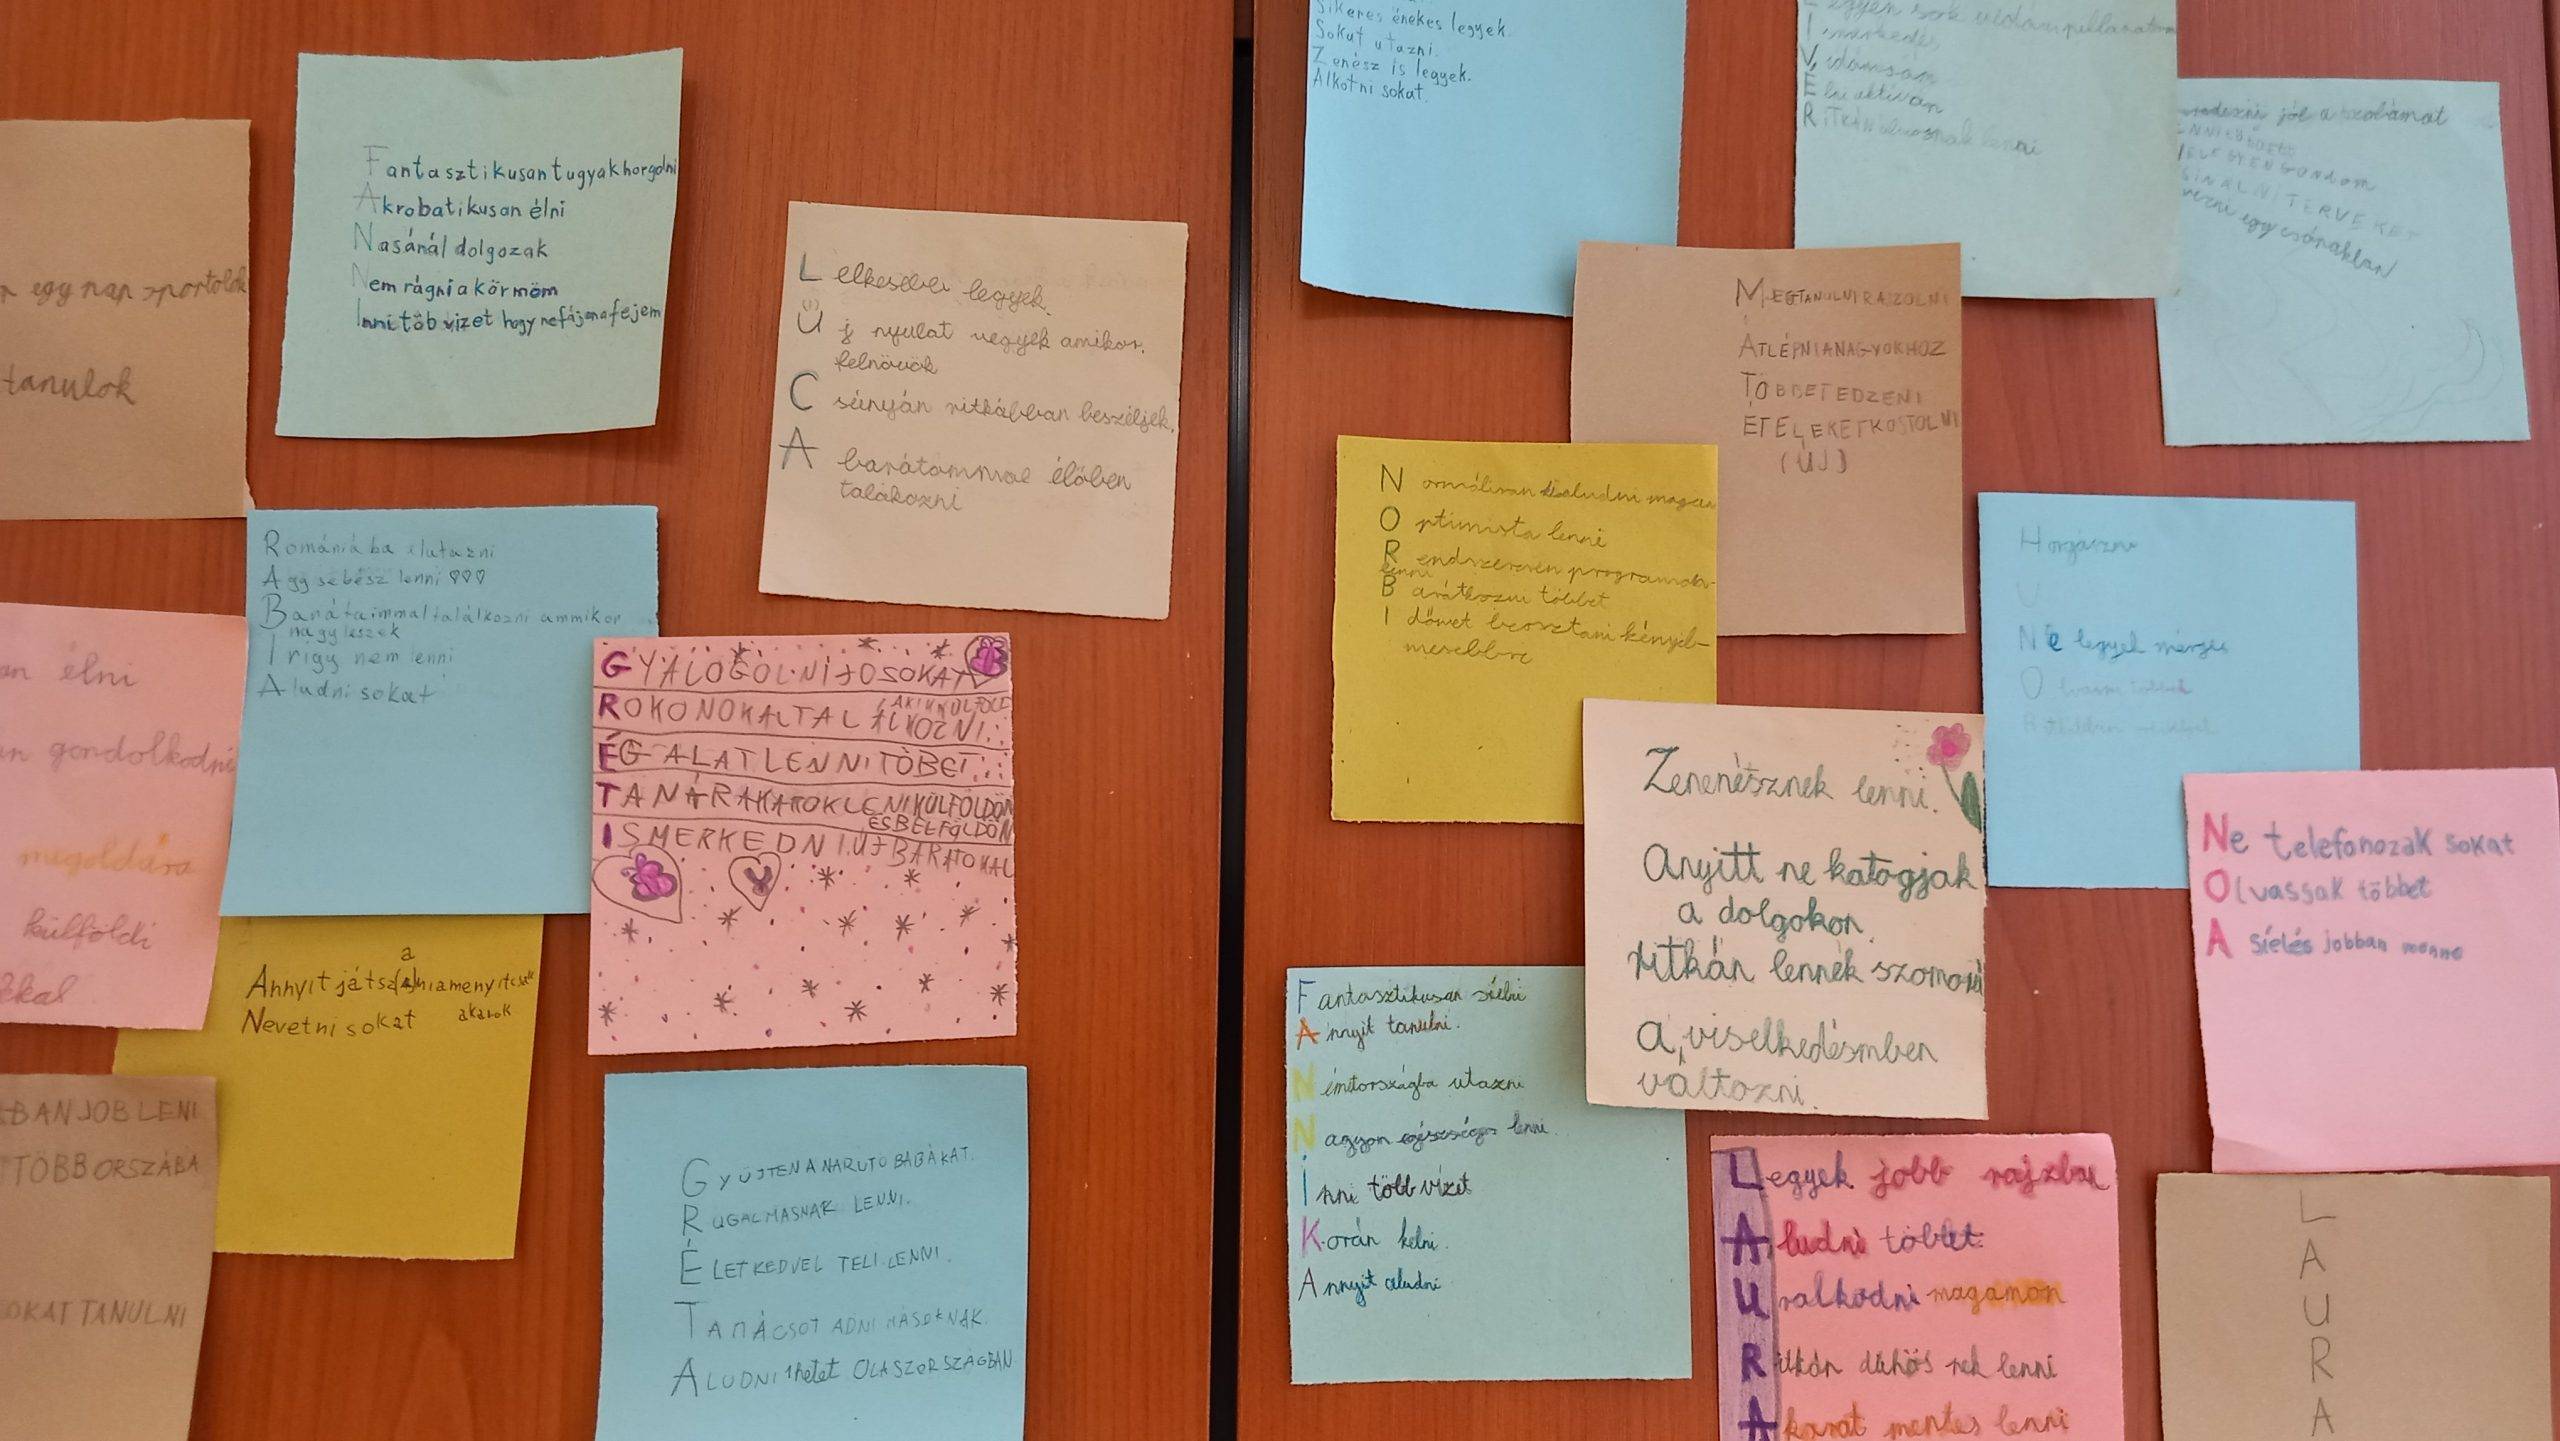 egy nap sportolok
tanulok
Fantasztikusan tugyak horgolni
Akrobatikusan élni
Nasánál dolgozak
Nem rágni a körmöm
Inni töb vizet hogy ne fájon a fejem
Lelkesebb legyek
Új nyulat vegyek amikor
felnövök
Csúnyán ritkábban beszéljek.
A barátommal élőben
talákozni
Romániába elutazni
Agysebész lenni ♡♡♡
Barátaimmal találkozni ammikor
nagy leszek
Irigy nem lenni
Aludni sokat
élni
gondolkodni
megoldásra
külföldi
GYALOGOLNI JO SOKAT
AKIK KÜLFÖLD
ROKONOKAL TALÁLKOZNI
ÉG ALAT LENNI TÖBET
TANÁR AKAROK LENI KÜLFÖLDÖN
ÉS BELFÖLDÖN
ISMERKEDNI ÚJ BARATOKAL
a
Annyit játsani amenyit csak
akarok
Nevetni sokat
BAN JOB LENI
TÖBB ORSZÁBA
OKAT TANULNI
GYŰJTENI A NARUTO BABÁKAT.
RUGALMASNAK LENNI.
ÉLETKEDVEL TELI LENNI.
TANÁCSOT ADNI MÁSOKNAK.
ALUDNI 1 hetet OLASZORSZÁGBAN
Sikeres énekes legyek.
Sokat utazni.
Zenész is legyek.
Alkotni sokat.
Legyen sok vidám pillanatom
Ismerkedés
Vidámsam
Élni aktívan
Ritkán álmosnak lenni
jól a szobámat
LEGYEN GONDOM
SINÁLNI TERVEKET
egy csónakban
MEGTANULNI RAJZOLNI
ÁTLÉPNI A NAGYOKHOZ
TÖBBET EDZENI
ÉTELEKET KOSTOLNI
(ÚJ)
Normálisan kialudni magam
Optimista lenni
Rendszeresen programok
lenni
Barátkozni többet
Időmet beosztani kényel-
mesebbre
Horgászni
U
Ne legyek mérges
Olvasni többet
Zenenésznek lenni.
Anyitt ne katogjak
a dolgokon.
ritkán lennék szomorú
a viselkedésmben
változni.
Ne telefonozak sokat
Olvassak többet
A síelés jobban menne
Fantasztikusan síelni
Annyit tanulni.
Németországba utazni
Nagyon egészséges lenni
Inni több vizet
Korán kelni.
Annyit aludni
Legyek jobb rajzban
Aludni többet
Uralkodni magamon
Ritkán dühös nek lenni
Akarat mentes lenni
L
A
U
R
A